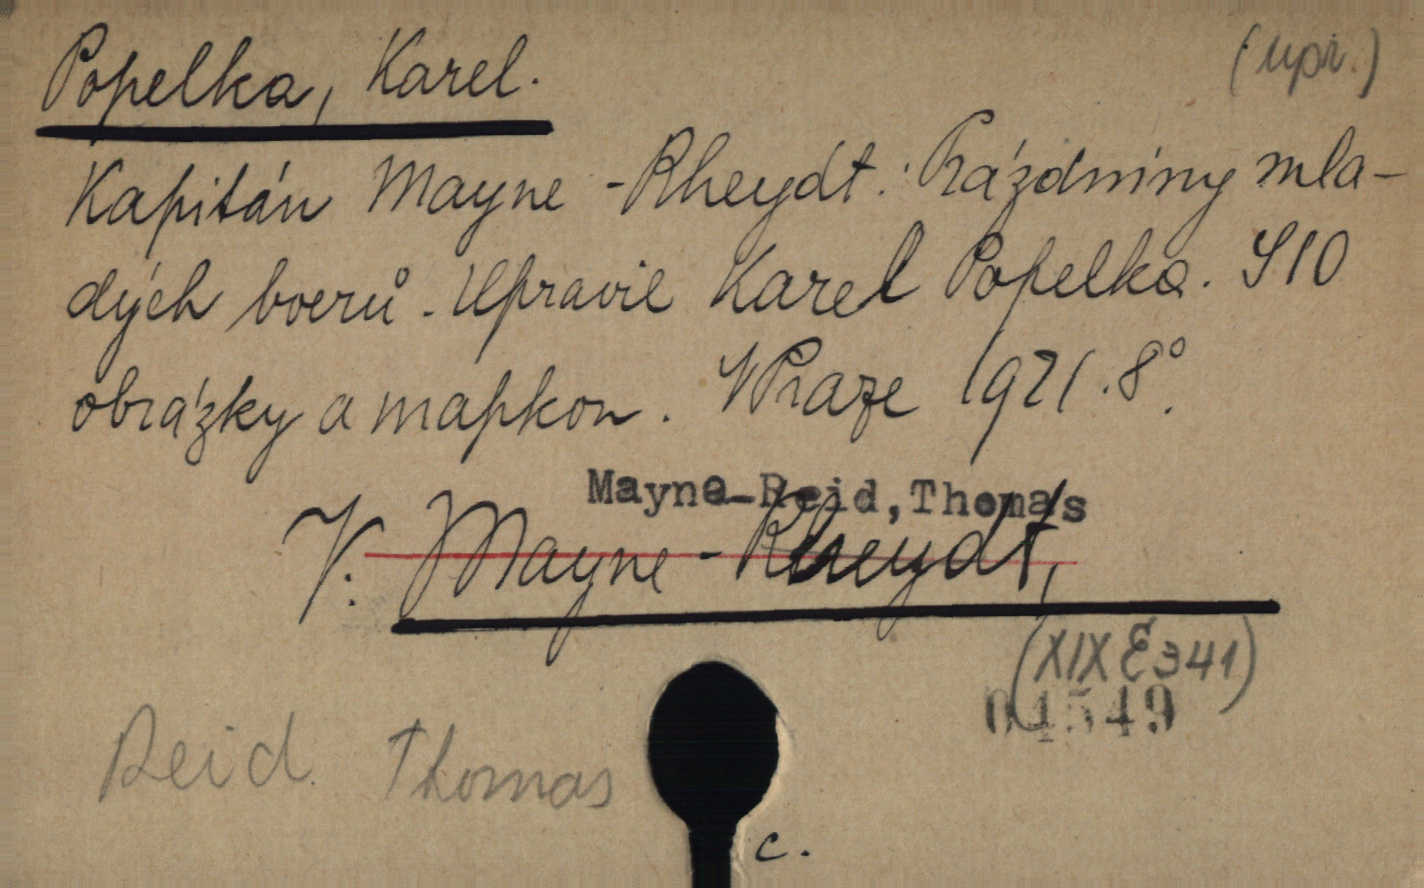 Popelka, Karel.
(upr.)
Kapitán Mayne-Rheydt: Prázdniny mla-
dých boerů. Upravil Karel Popelka. S 10
obrázky a mapkou. V Praze 1921. 8°.
Mayne-Reid, Thomas
V. Mayne-Rheydt,
(XIX E 341)
04549
Reid Thomas
c.